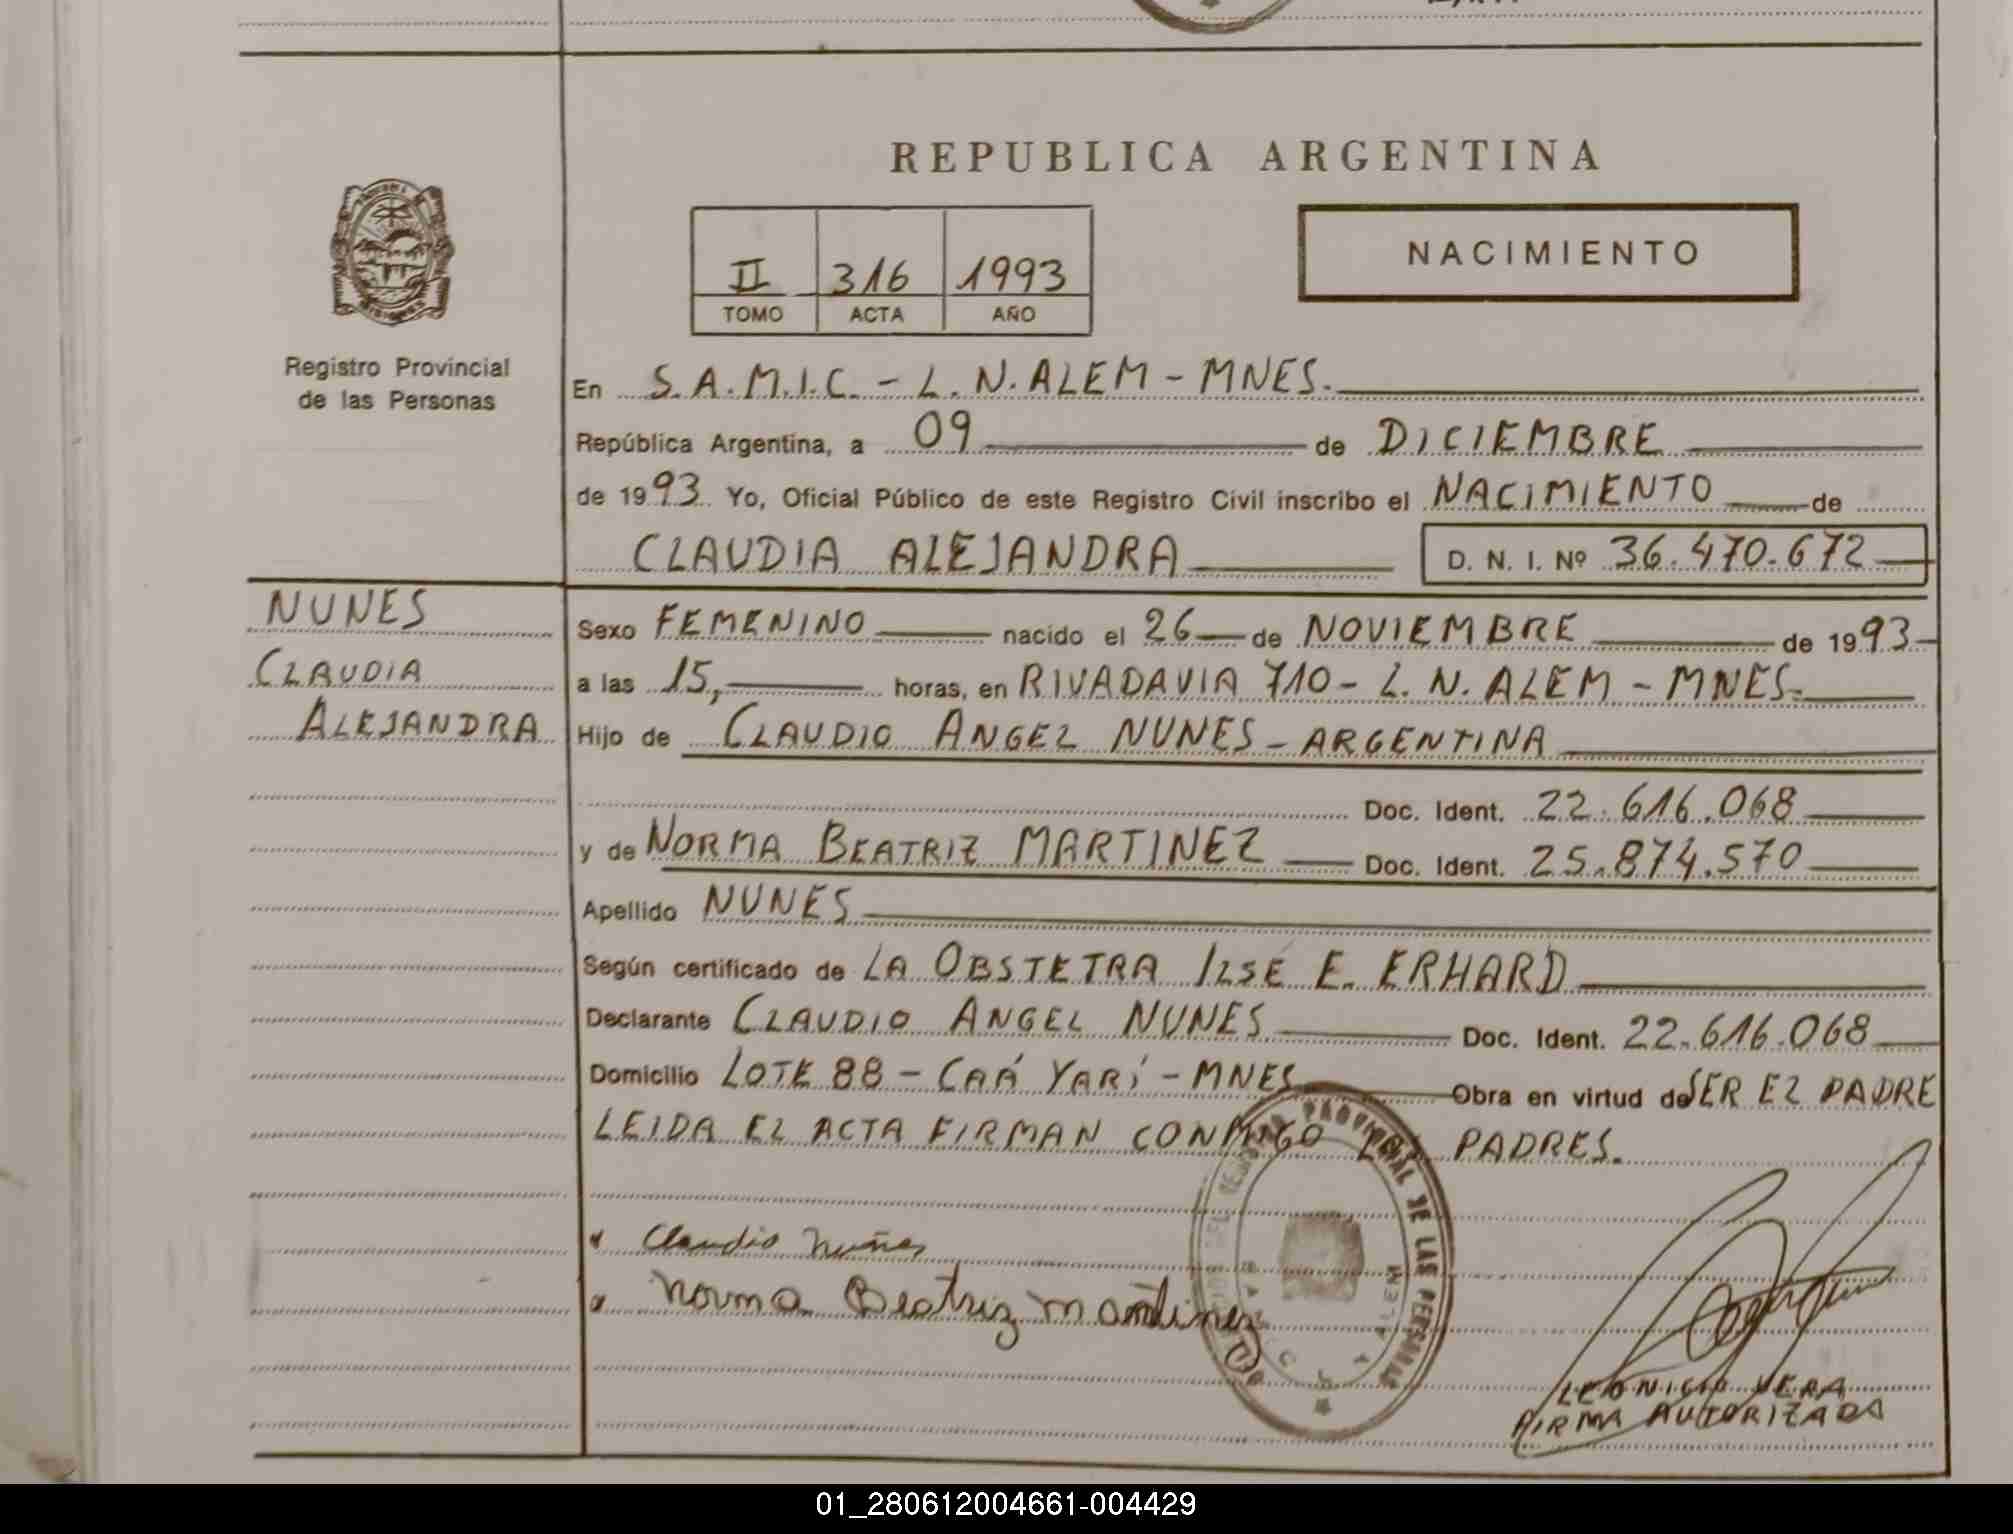 REPUBLICA ARGENTINA
II 316 1993
TOMO ACTA AÑO
NACIMIENTO
Registro Provincial
de las Personas
En S.A.M.I.C. - L. N. ALEM - MNES.
República Argentina, a 09 de DICIEMBRE
de 1993 Yo, Oficial Público de este Registro Civil inscribo el NACIMIENTO de
CLAUDIA ALEJANDRA D. N. I. Nº 36.470.672
NUNES
CLAUDIA
ALEJANDRA
Sexo FEMENINO nacido el 26 de NOVIEMBRE de 1993
a las 15, horas, en RIVADAVIA 710 - L. N. ALEM - MNES.
Hijo de CLAUDIO ANGEL NUNES - ARGENTINA
Doc. Ident. 22.616.068
y de NORMA BEATRIZ MARTINEZ Doc. Ident. 25.874.570
Apellido NUNES
Según certificado de LA OBSTETRA ILSE E. ERHARD
Declarante CLAUDIO ANGEL NUNES Doc. Ident. 22.616.068
Domicilio LOTE 88 - CAÁ YARÍ - MNES Obra en virtud de SER EL PADRE
LEIDA EL ACTA FIRMAN CONMIGO LOS PADRES.
Claudio Nuñes
Norma Beatriz Martinez
PROVINCIAL DE LAS PERSONAS
LEONICIO VERA
FIRMA AUTORIZADA
01_280612004661-004429